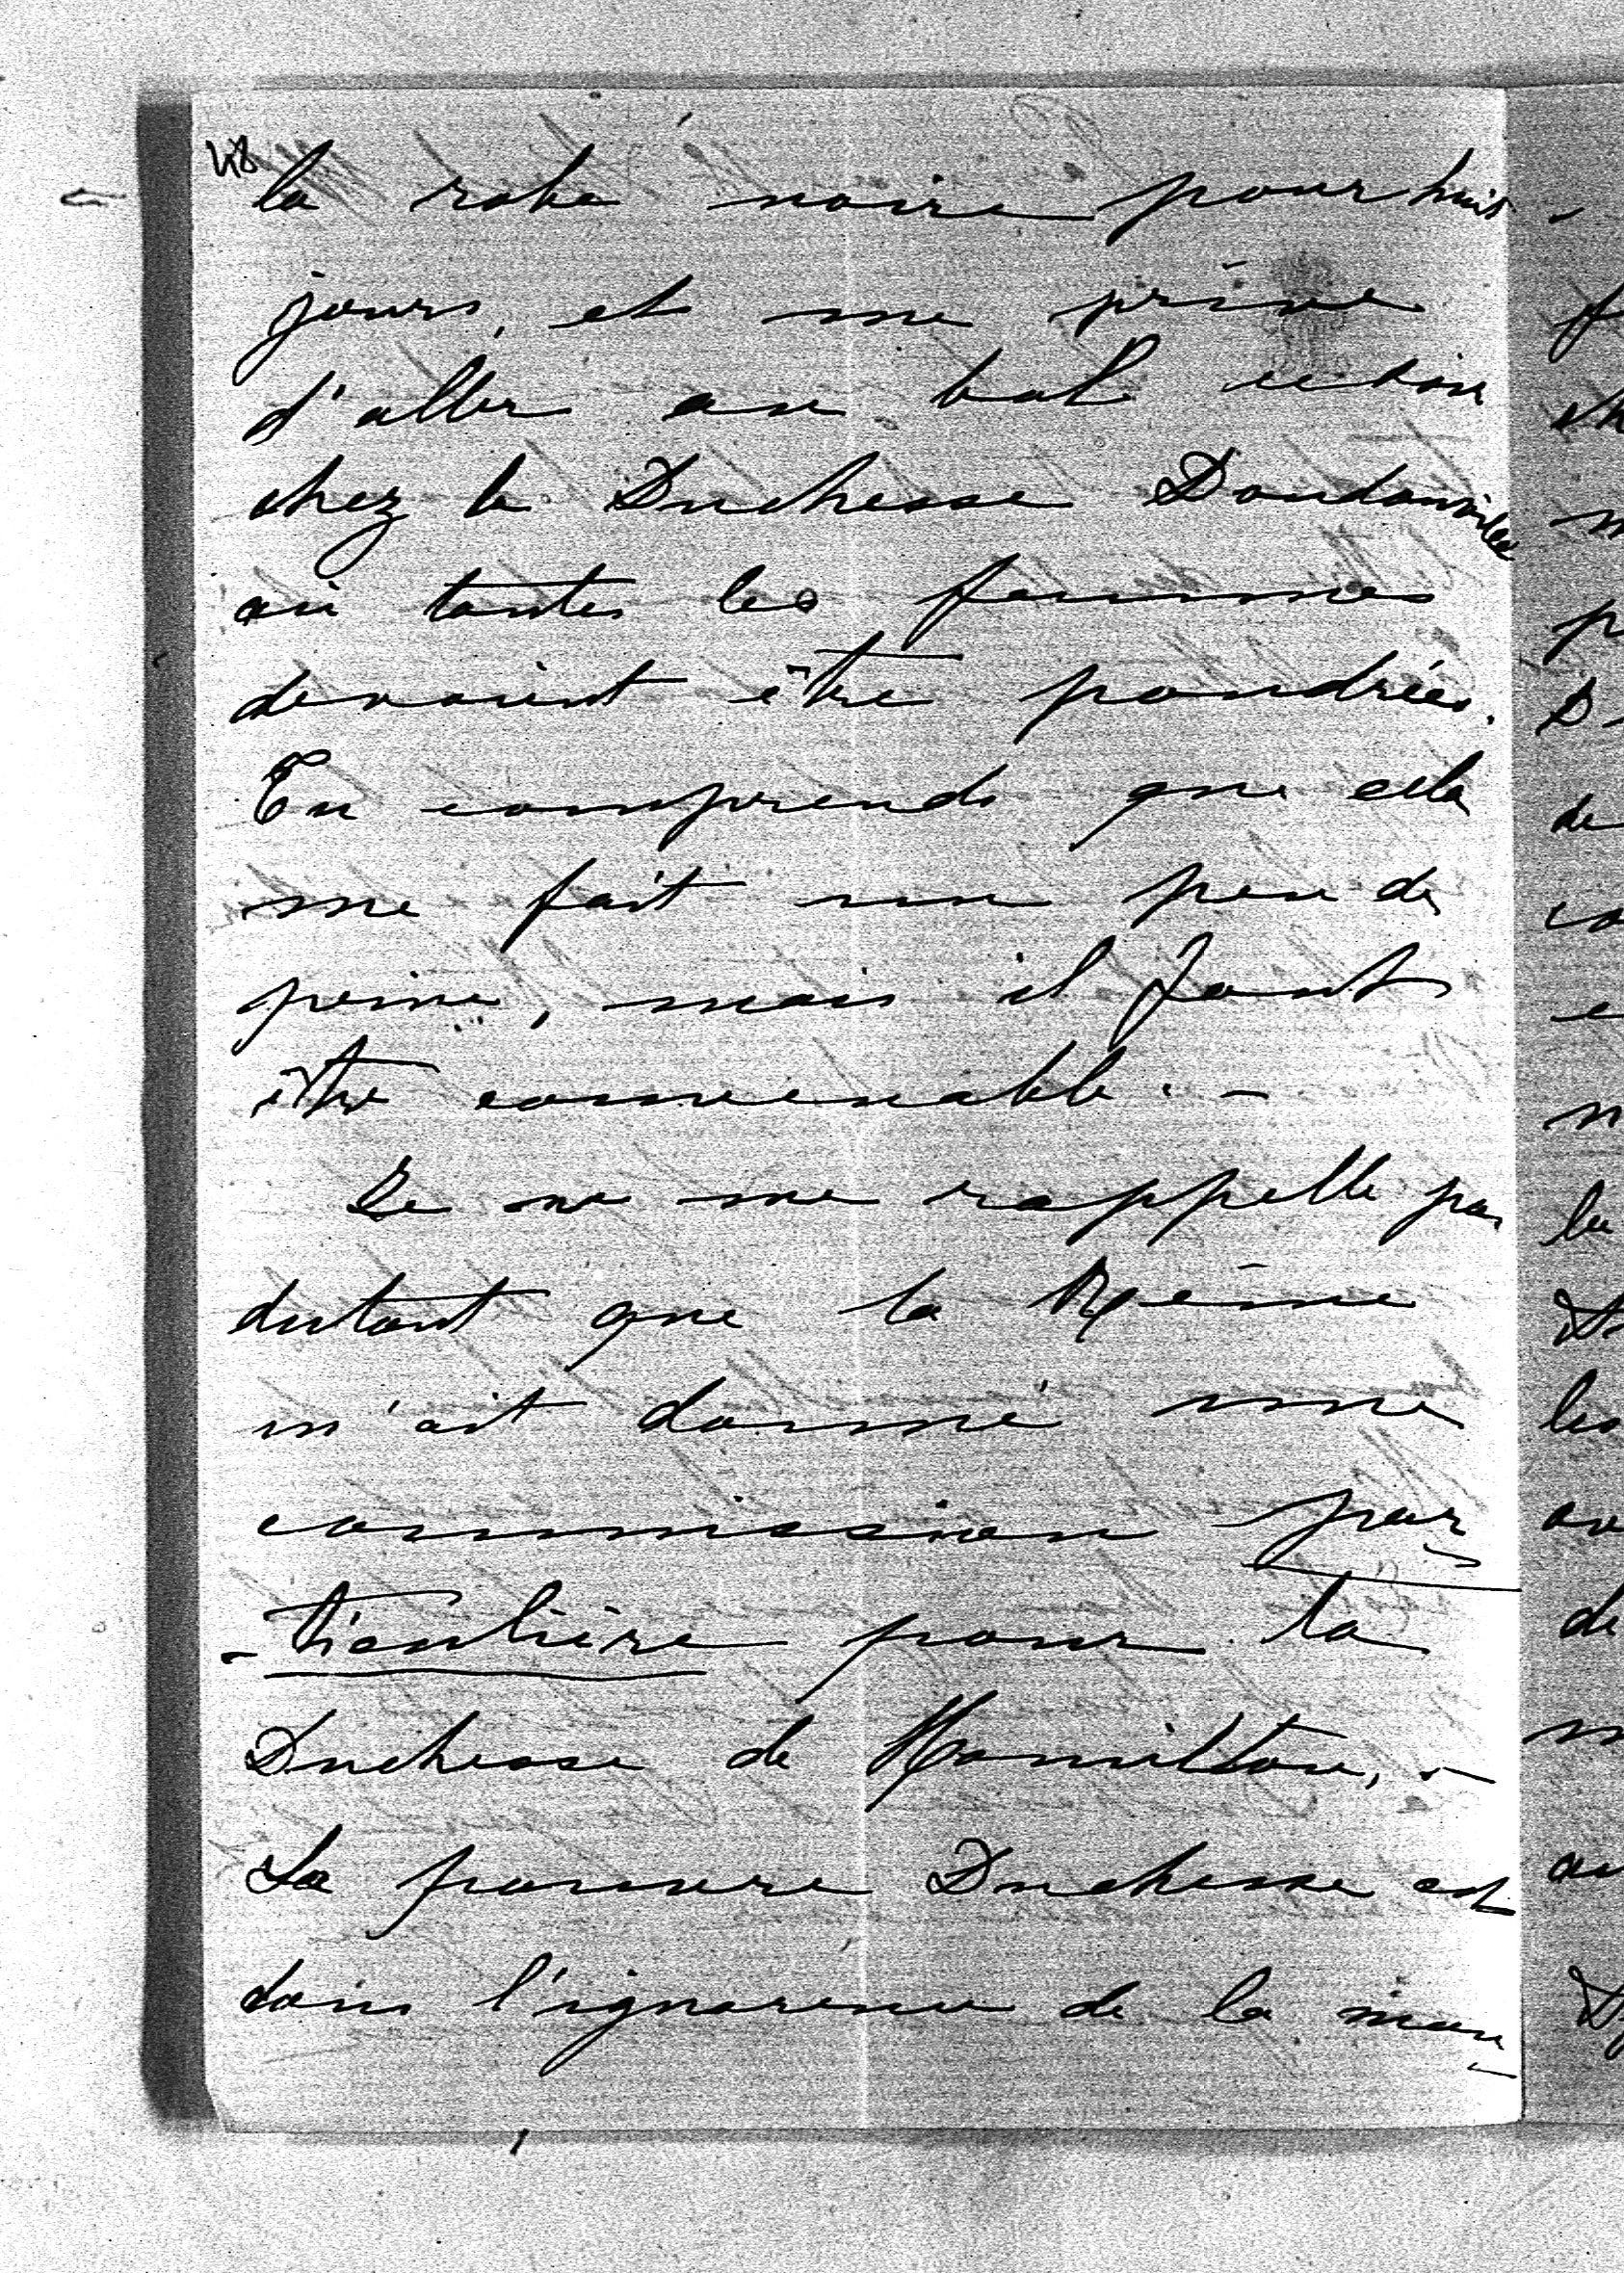 48
la robe noire pour huit
jours, et me prive
d'aller au bal ce soir
chez la Duchesse Doudeauville
où toutes les femmes
devaient être poudrées.
Tu comprends que cela
me fait un peu de
peine, mais il faut
être convenable. –
Je ne me rappelle pas
du tout que la Reine
m'ait donné une
commission par-
-ticulière pour la
Duchesse de Hamilton, . –
La pauvre Duchesse est
dans l'ignorance de la